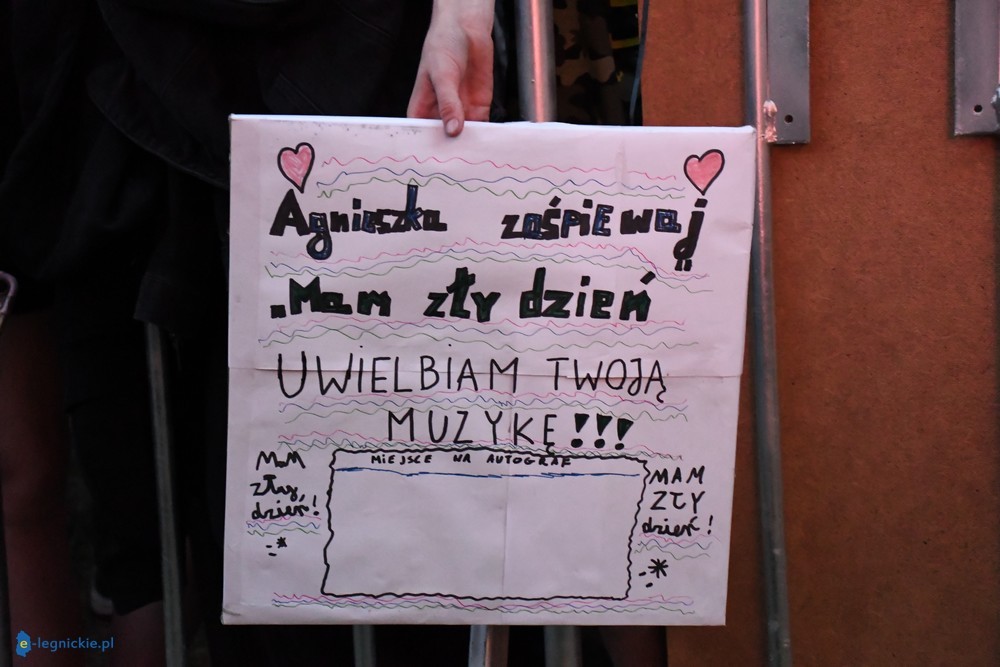 Agnieszka zaśpiewaj
„Mam zły dzień"
UWIELBIAM TWOJĄ
MUZYKĘ!!!
MIEJSCE NA AUTOGRAF
MAM
zły
dzień!
MAM
ZŁY
dzień!
e-legnickie.pl